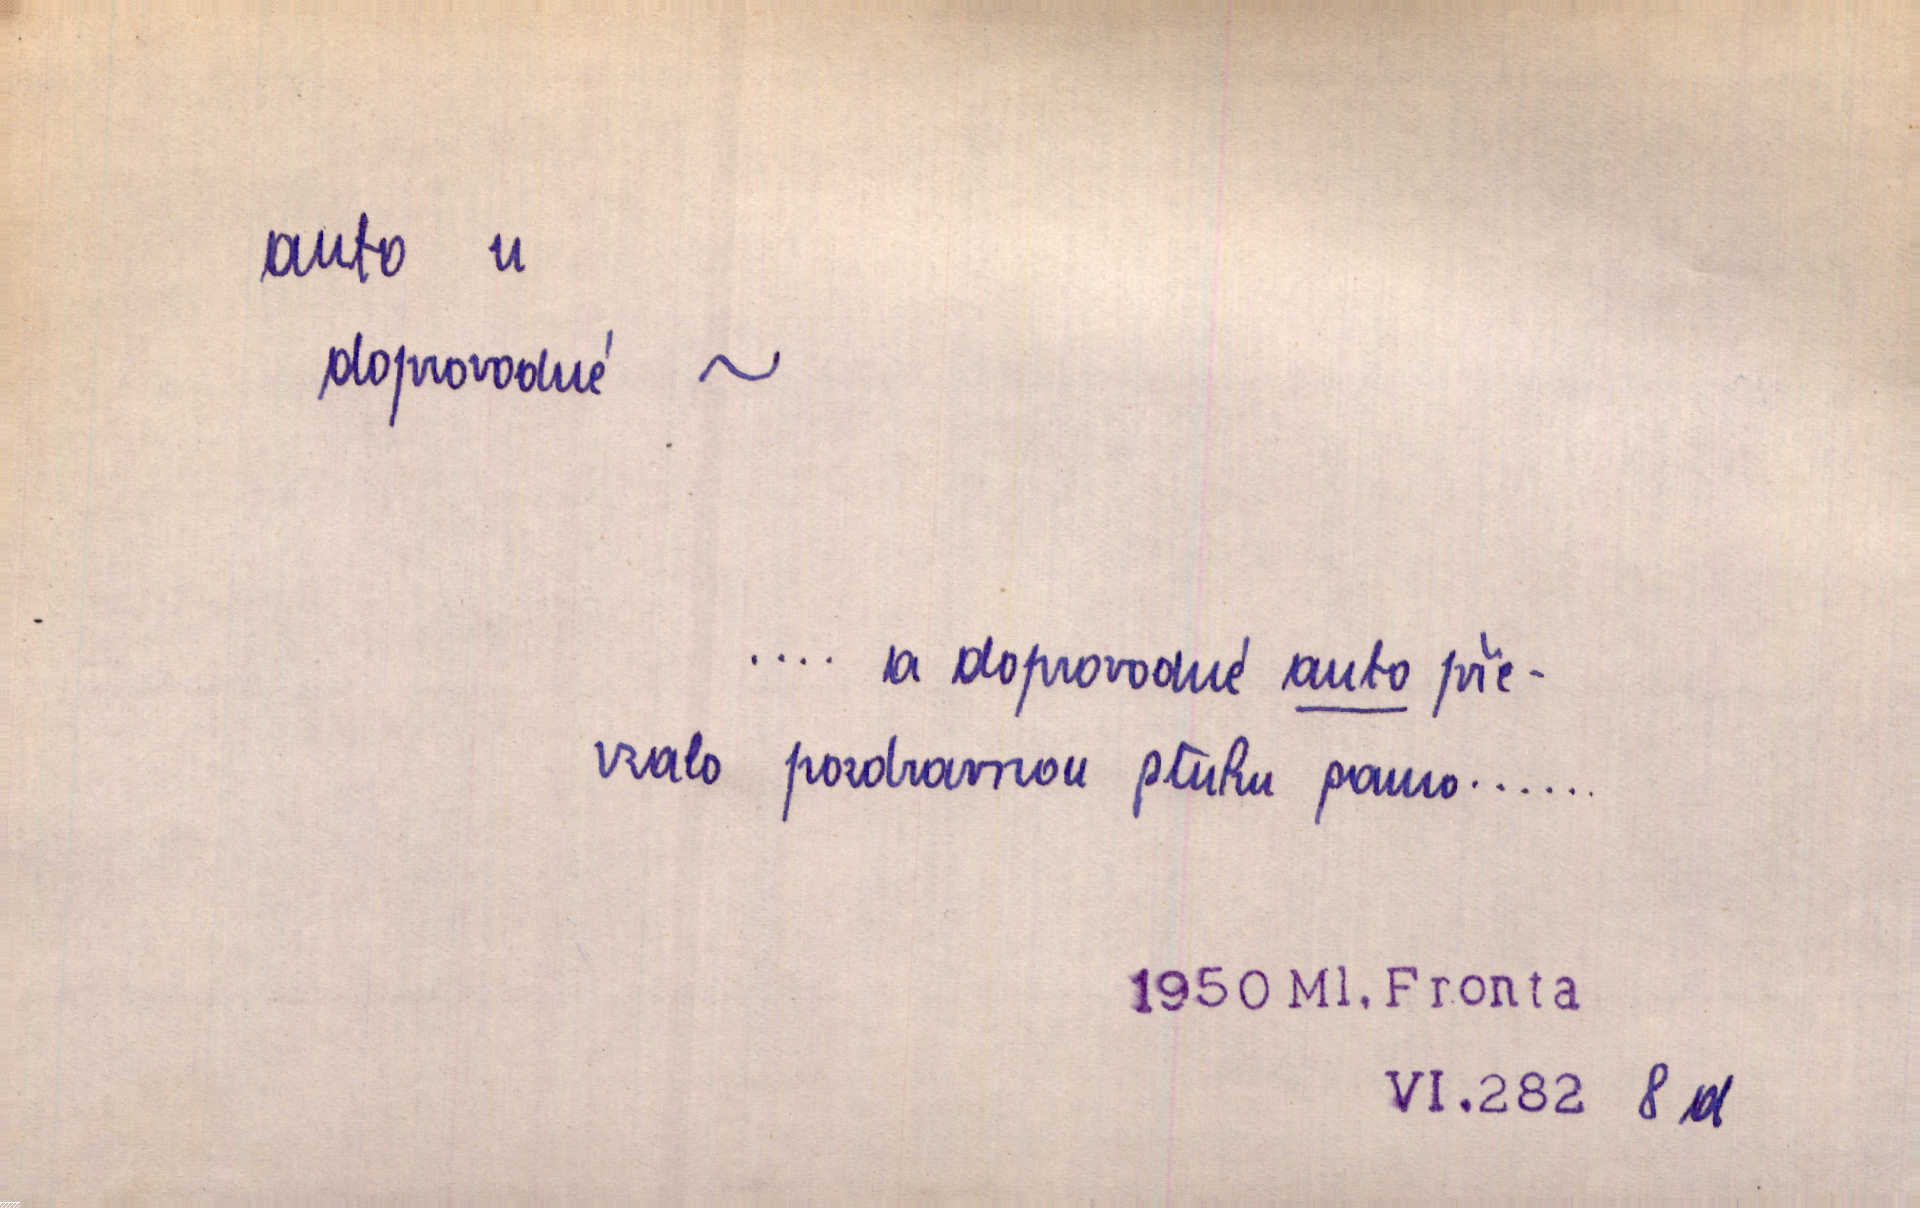 auto n
doprovodné ~
.... a doprovodné auto pře-
vzalo pozdravnou štiku
1950 Ml. Fronta
VI.282 8 d